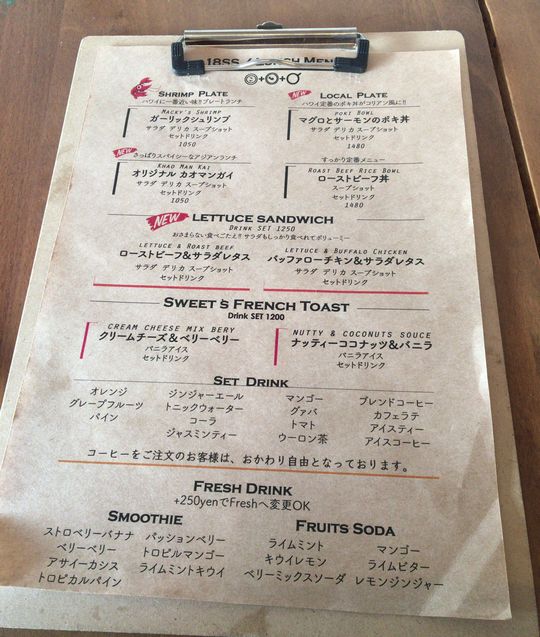 LUNCH MENU
SHRIMP PLATE
ハワイに一番近い味!!プレートランチ
MACKY'S SHRIMP
ガーリックシュリンプ
サラダ デリカ スープショット
セットドリンク
1050
NEW
LOCAL PLATE
ハワイ定番のポキ丼がコリアン風に!!
POKI BOWL
マグロとサーモンのポキ丼
サラダ デリカ スープショット
セットドリンク
1480
NEW
さっぱりスパイシーなアジアンランチ
KHAO MAN KAI
オリジナル カオマンガイ
サラダ デリカ スープショット
セットドリンク
1050
すっかり定番メニュー
ROAST BEEF RICE BOWL
ローストビーフ丼
スープショット
セットドリンク
1480
NEW
LETTUCE SANDWICH
DRINK SET 1250
おさまらない食べごたえ!! サラダもしっかり食べれてボリューミー
LETTUCE & ROAST BEEF
ローストビーフ&サラダレタス
サラダ デリカ スープショット
セットドリンク
LETTUCE & BUFFALO CHICKEN
バッファローチキン&サラダレタス
サラダ デリカ スープショット
セットドリンク
SWEET'S FRENCH TOAST
Drink SET 1200
CREAM CHEESE MIX BERY
クリームチーズ&ベリーベリー
バニラアイス
セットドリンク
NUTTY & COCONUTS SOUCE
ナッティーココナッツ&バニラ
バニラアイス
セットドリンク
SET DRINK
オレンジ
グレープフルーツ
パイン
ジンジャーエール
トニックウォーター
コーラ
ジャスミンティー
マンゴー
グァバ
トマト
ウーロン茶
ブレンドコーヒー
カフェラテ
アイスティー
アイスコーヒー
コーヒーをご注文のお客様は、おかわり自由となっております。
FRESH DRINK
+250yenでFreshへ変更OK
SMOOTHIE
ストロベリーバナナ
ベリーベリー
アサイーカシス
トロピカルパイン
パッションベリー
トロピルマンゴー
ライムミントキウイ
FRUITS SODA
ライムミント
キウイレモン
ベリーミックスソーダ
マンゴー
ライムビター
レモンジンジャー